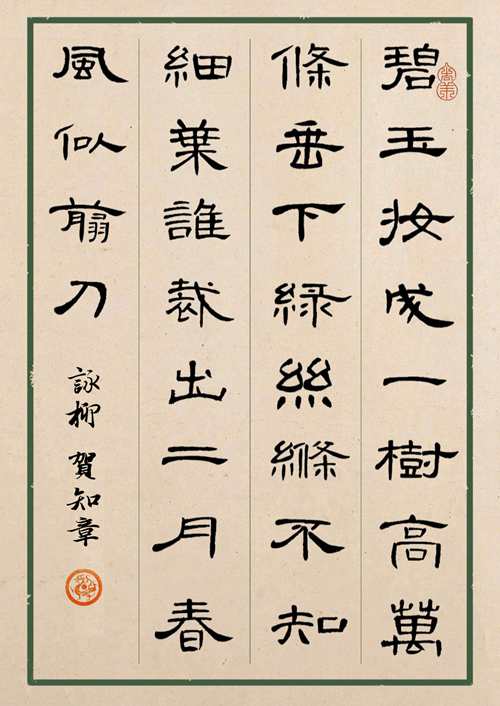 碧玉妝成一樹高萬
條垂下緑絲縧不知
細葉誰裁出二月春
風似翦刀
詠柳 賀知章